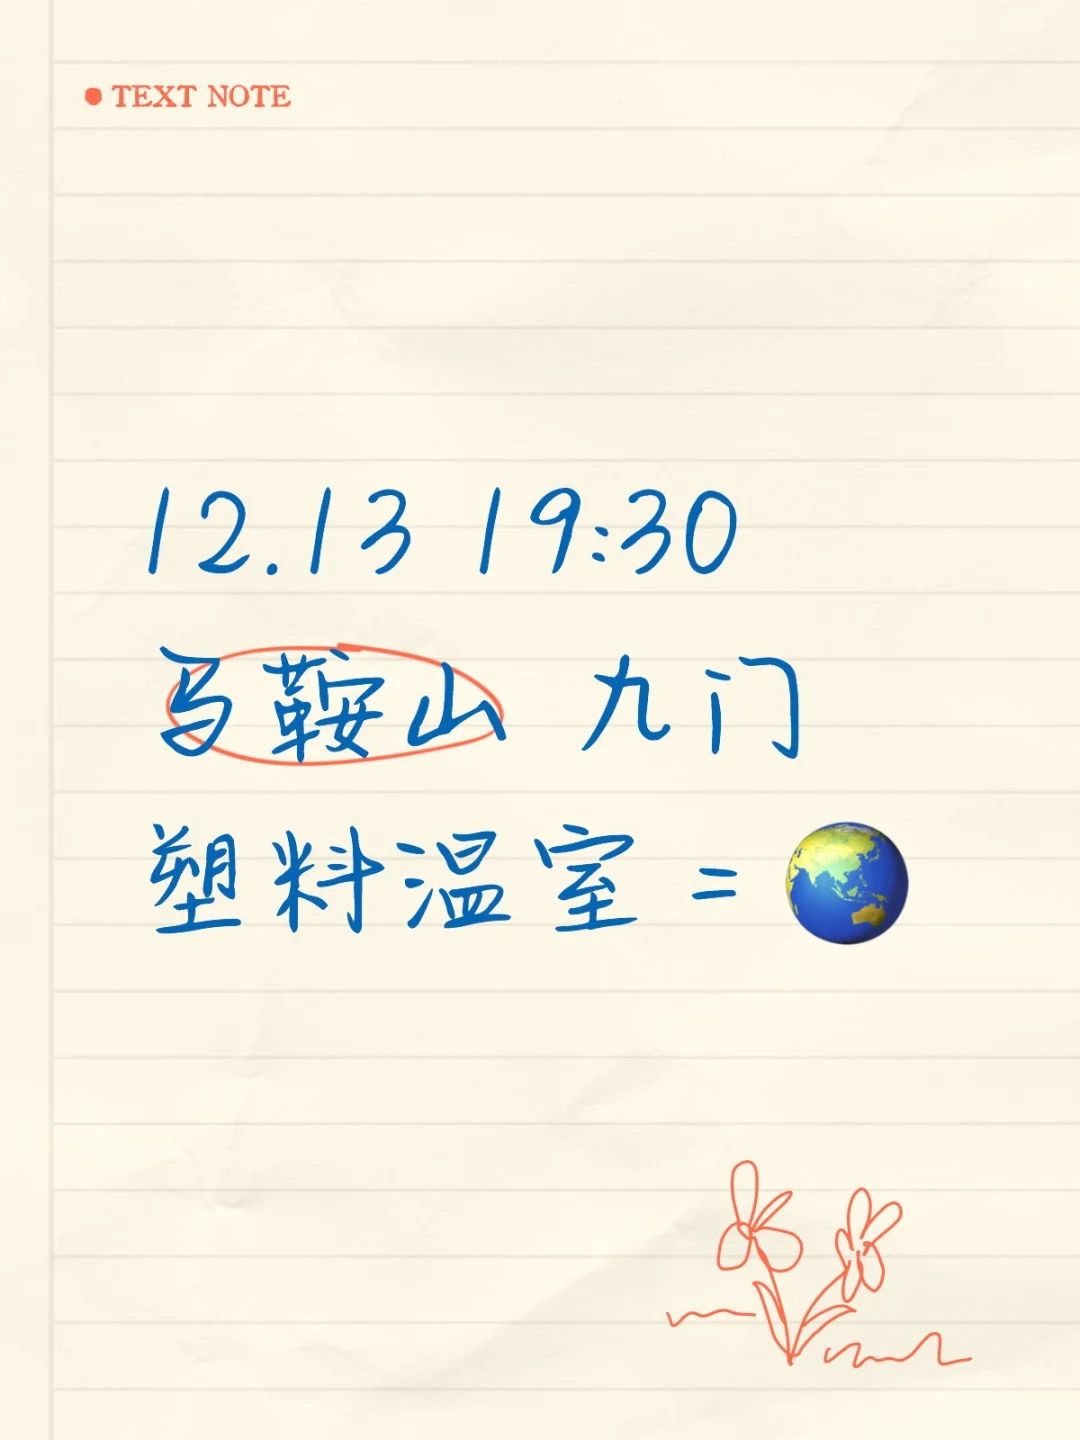 TEXT NOTE
12.13 19:30
马鞍山 九门
塑料温室 = 🌏